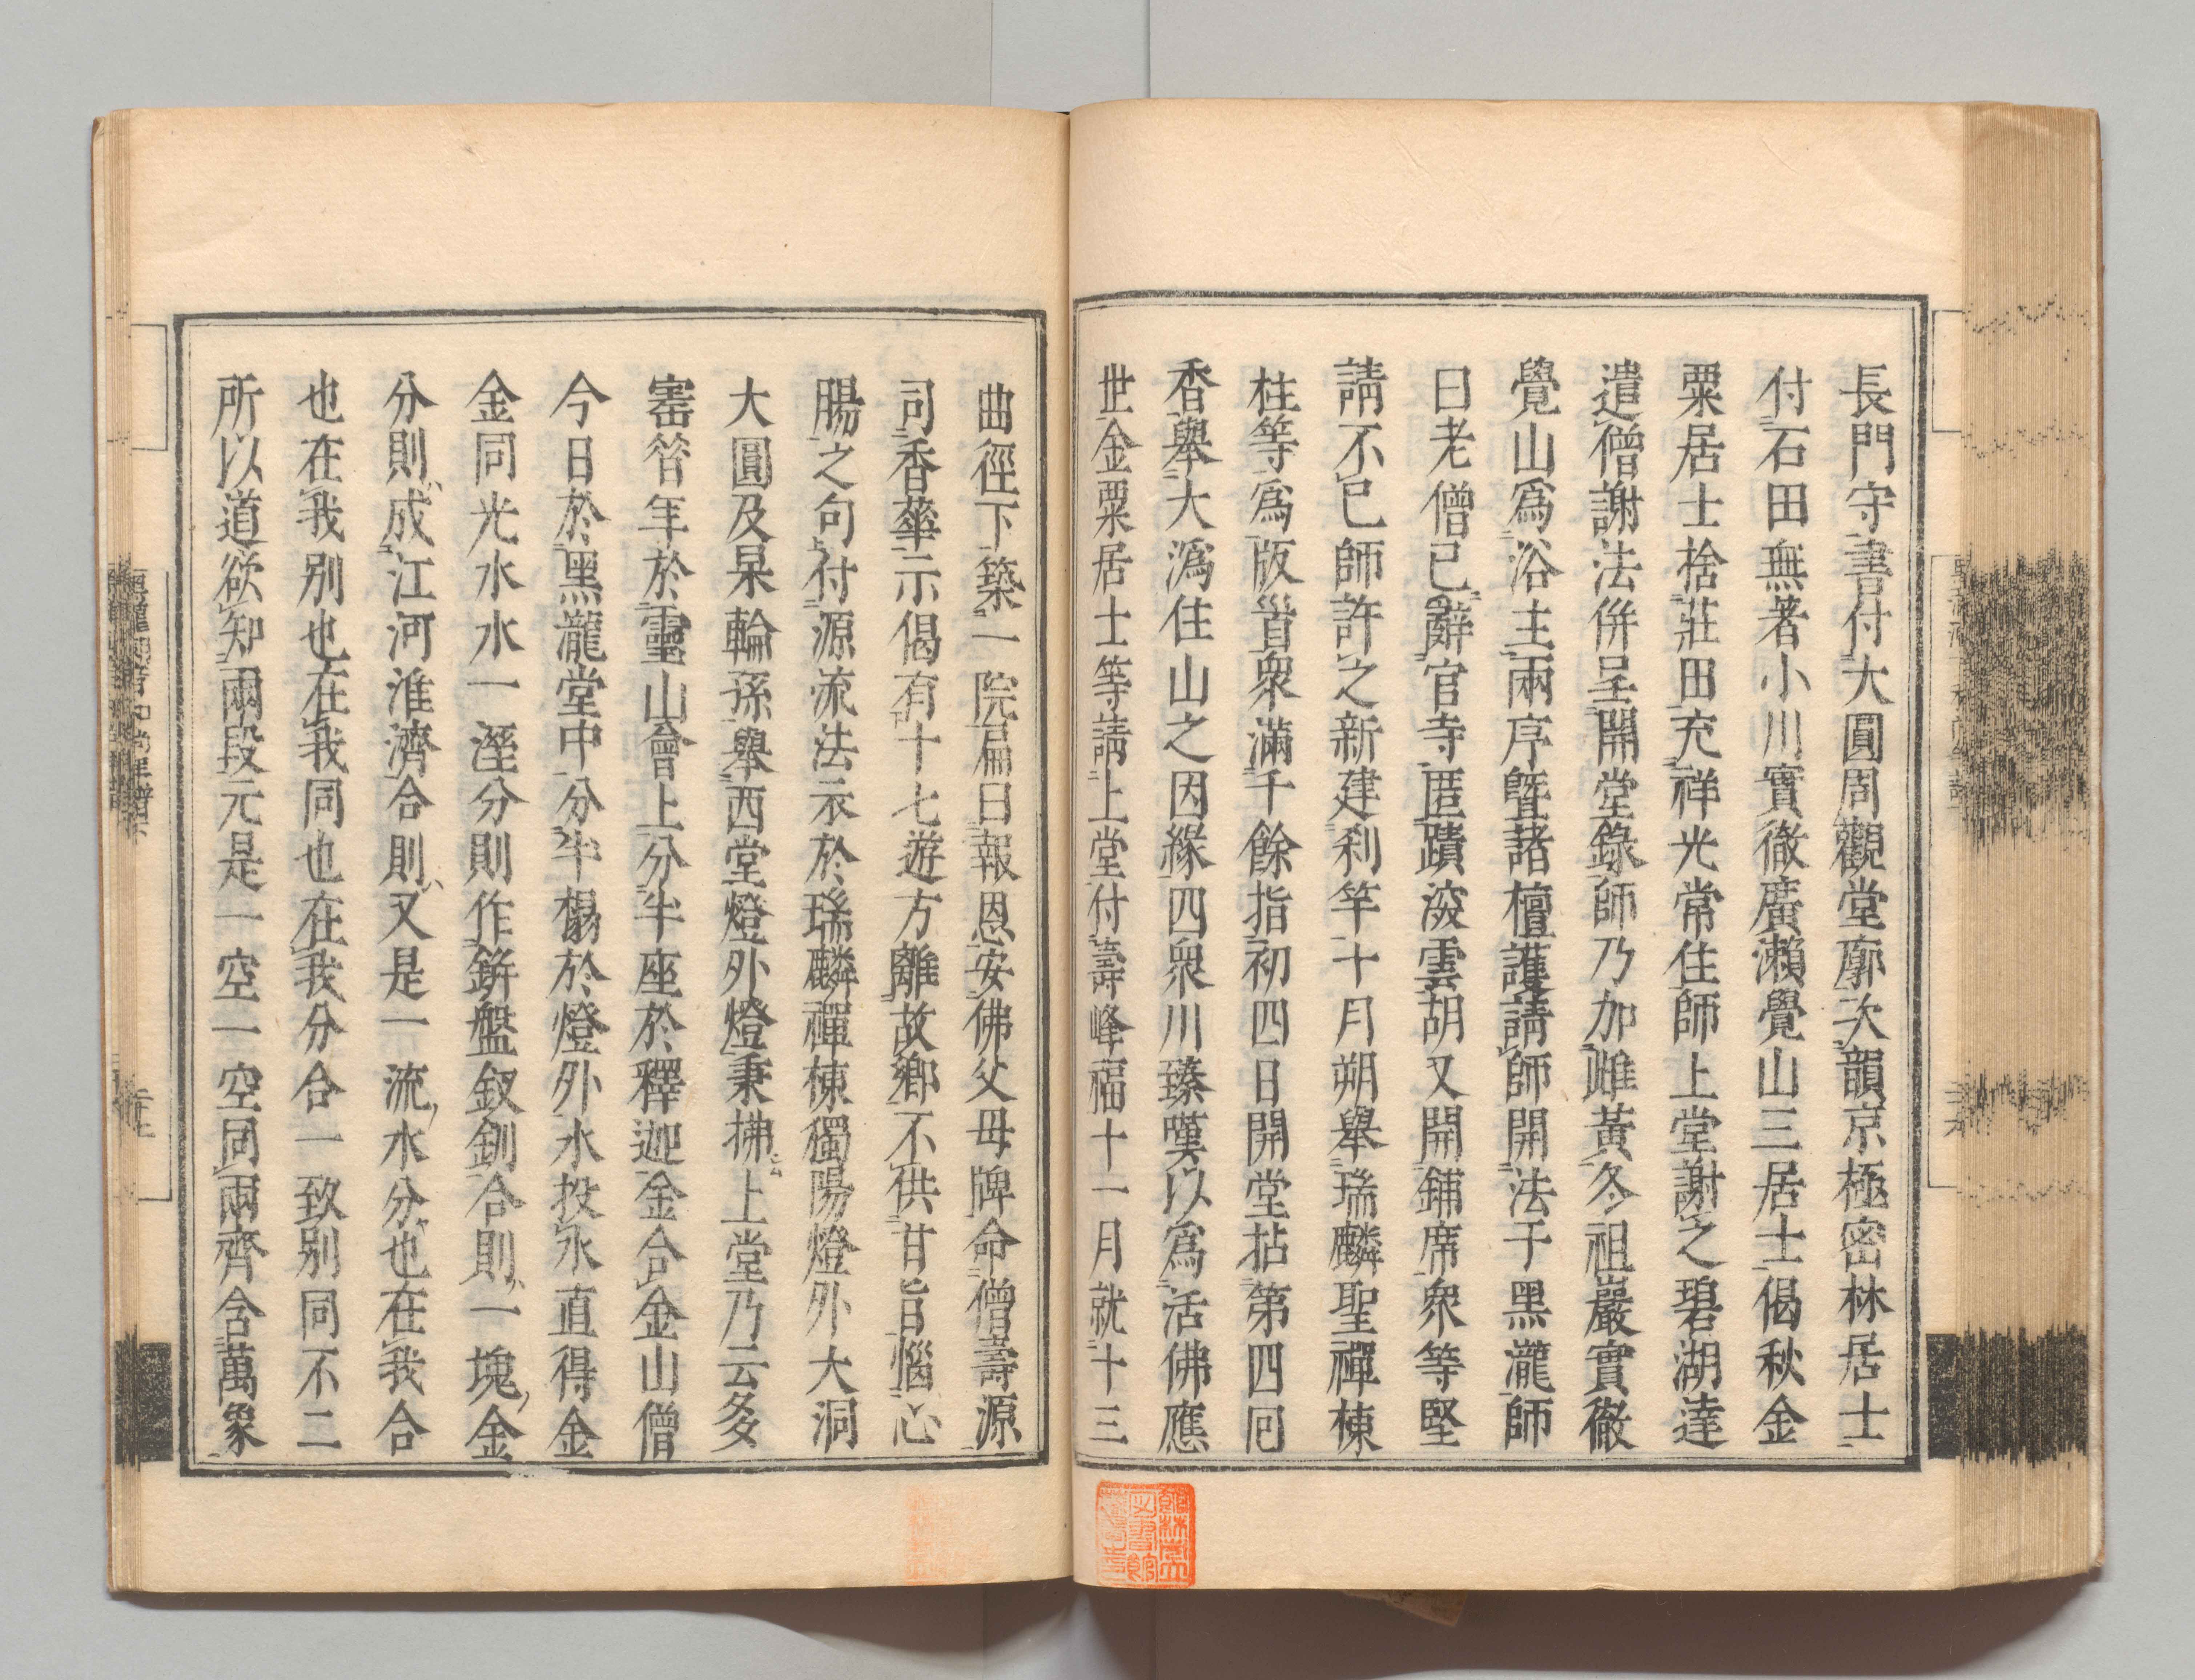 長門守書付大圓周觀堂廓次韻京極密林居士
付石田無著小川實徹廣瀨覺山三居士偈秋金
粟居士捨莊田充祥光常住師上堂謝之碧湖達
遣僧謝法併呈開堂錄師乃加雌黃冬祖巖實徹
覺山爲浴主兩序曁諸檀護請師開法于黑瀧師
曰老僧已辭官寺匿蹟深雲胡又開鋪席衆等堅
請不已師許之新建刹竿十月朔舉瑞麟聖禪棟
柱等爲版首衆滿千餘指初四日開堂拈第四回
香舉大潙住山之因緣四衆川臻嘆以爲活佛應
世金粟居士等請上堂付壽峰福十一月就十三
曲徑下築一院扁曰報恩安佛父母牌命僧壽源
司香華示偈有十七遊方離故鄉不供甘旨惱心
腸之句付源流法衣於瑞麟禪棟獨陽燈外大洞
大圓及杲輪孫舉西堂燈外燈秉拂上堂乃云多
寳昝年於靈山會上分半座於釋迦金合金山僧
今日於黑瀧堂中分半榻於燈外水投水直得金
金同光水水一溼分則作鉼盤釵釧合則一塊金
分則成江河淮濟合則又是一流水分也在我合
也在我別也在我同也在我分合一致別同不二
所以道欲知兩段元是一空一空同兩齊含萬象